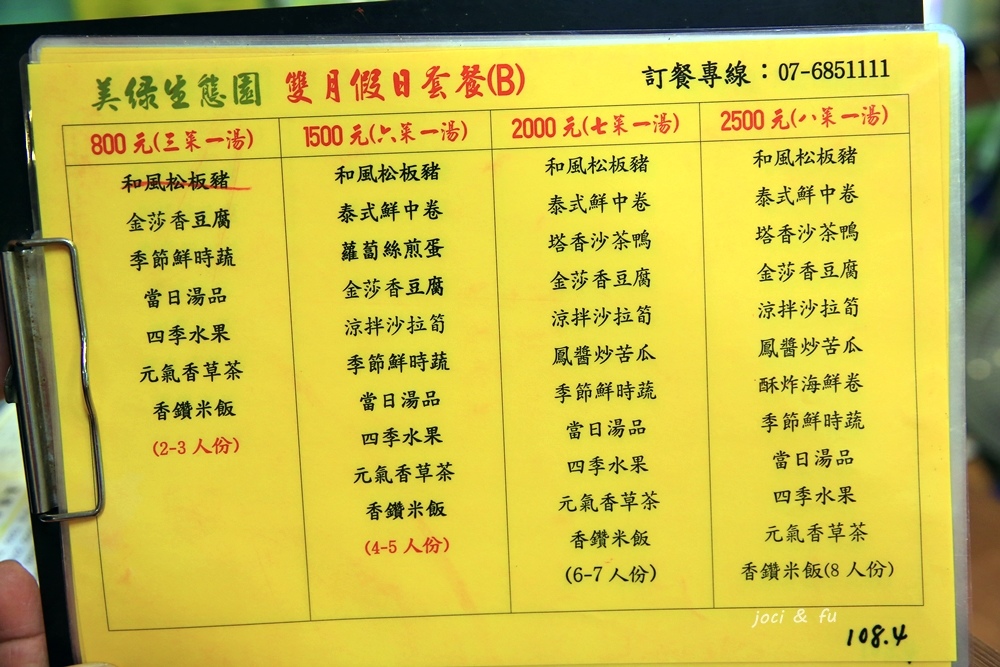 美綠生態園 雙月假日套餐(B) 訂餐專線：07-6851111
800元(三菜一湯)
和風松板豬
金莎香豆腐
季節鮮時蔬
當日湯品
四季水果
元氣香草茶
香鑽米飯
(2-3人份)
1500元(六菜一湯)
和風松板豬
泰式鮮中卷
蘿蔔絲煎蛋
金莎香豆腐
涼拌沙拉筍
季節鮮時蔬
當日湯品
四季水果
元氣香草茶
香鑽米飯
(4-5人份)
2000元(七菜一湯)
和風松板豬
泰式鮮中卷
塔香沙茶鴨
金莎香豆腐
涼拌沙拉筍
鳳醬炒苦瓜
季節鮮時蔬
當日湯品
四季水果
元氣香草茶
香鑽米飯
(6-7人份)
2500元(八菜一湯)
和風松板豬
泰式鮮中卷
塔香沙茶鴨
金莎香豆腐
涼拌沙拉筍
鳳醬炒苦瓜
酥炸海鮮卷
季節鮮時蔬
當日湯品
四季水果
元氣香草茶
香鑽米飯(8人份)
joci & fu
108.4